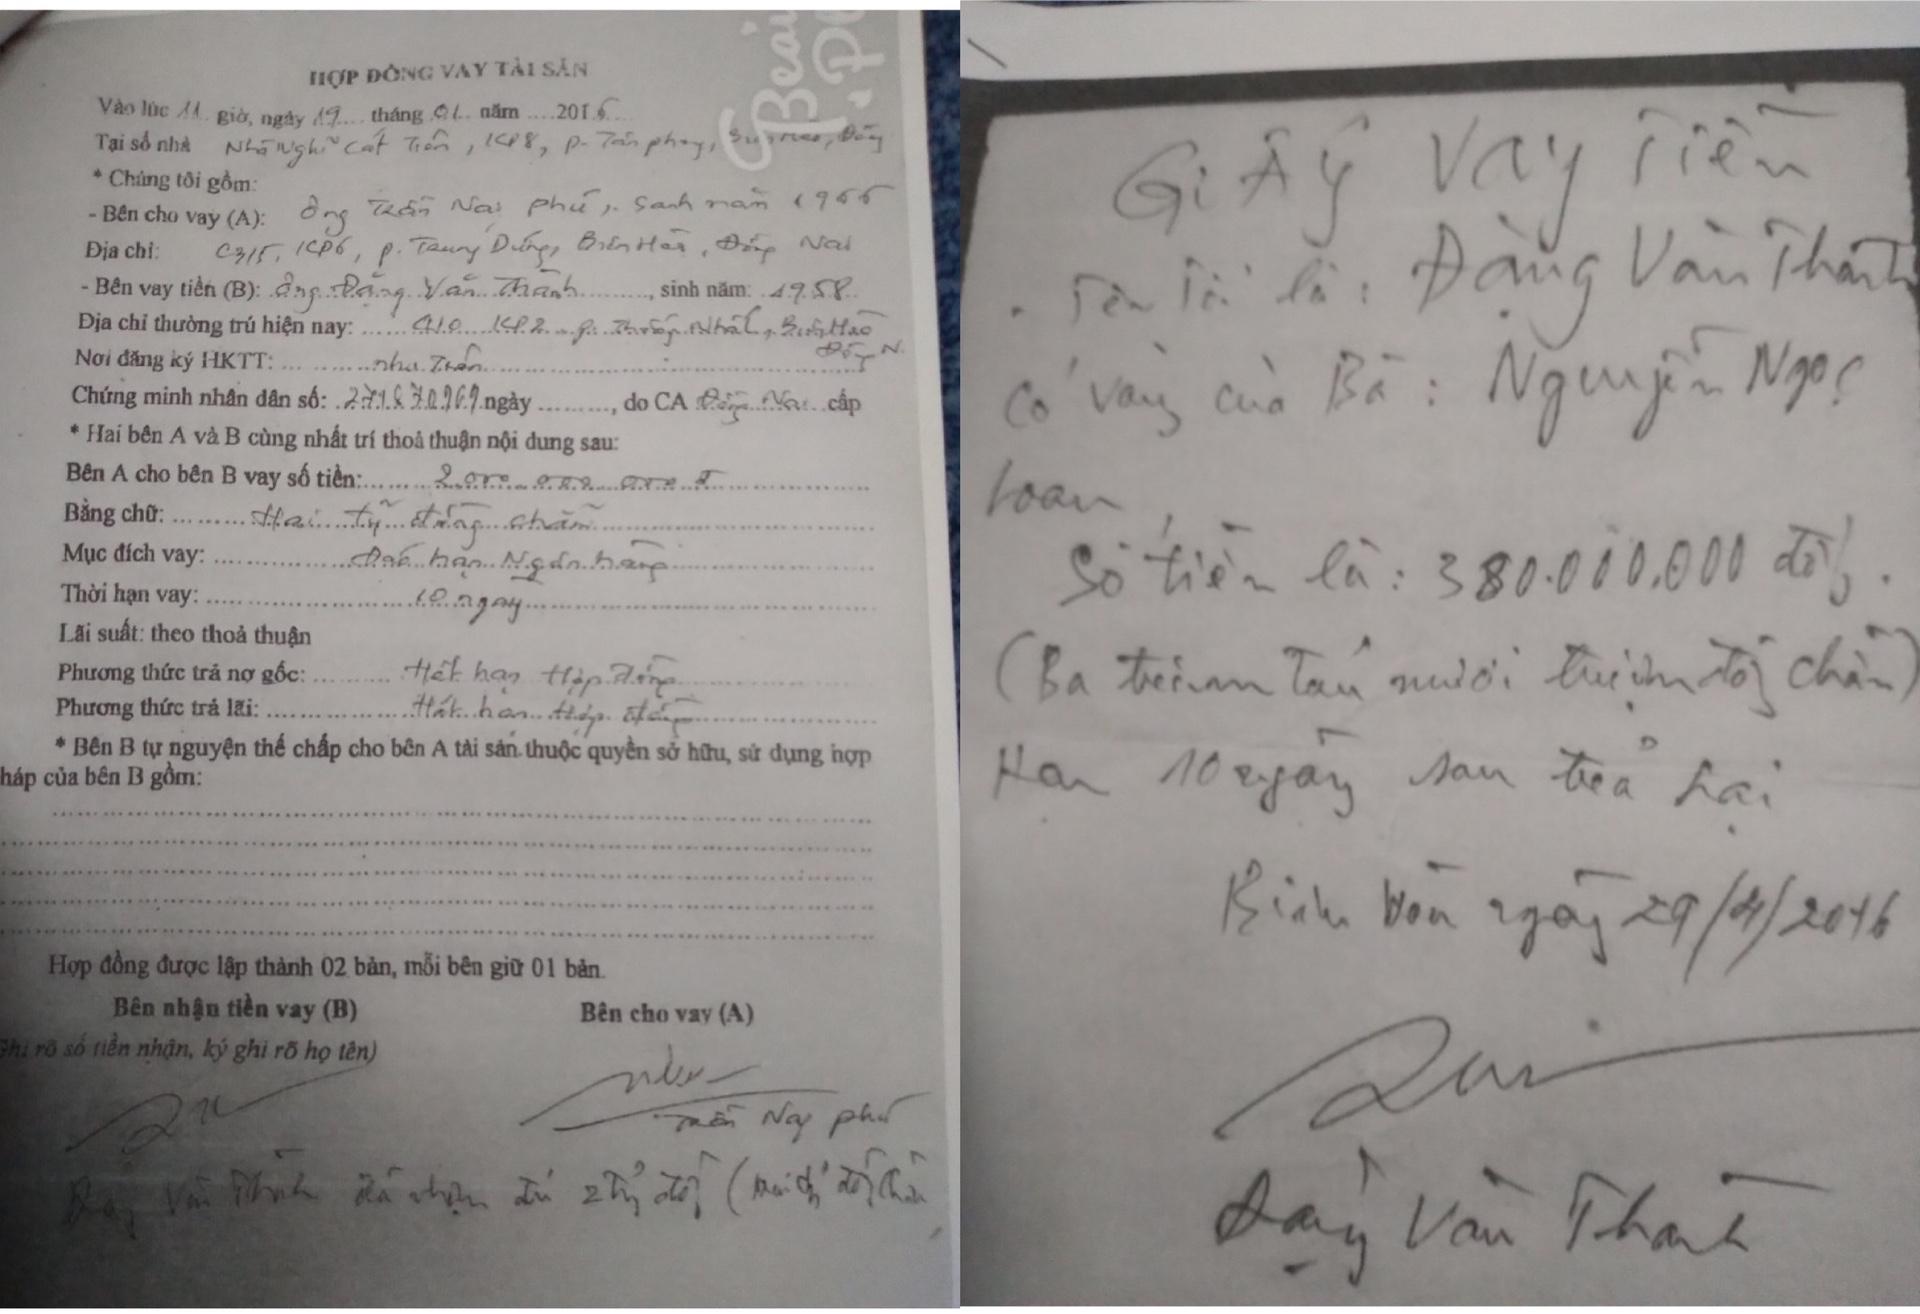 HỢP ĐỒNG VAY TÀI SẢN
Vào lúc 11 giờ, ngày 19 tháng 01 năm 2016
Tại số nhà Nhà Nghĩ Cát Tiên, KP8, P. Tân phong, Biên Hòa, Đồng
* Chúng tôi gồm:
- Bên cho vay (A): Ông Trần Nai phú, Sanh năm 1966
Địa chỉ: C3/5, KP6, p. Trung Dũng, Biên Hòa, Đồng Nai
- Bên vay tiền (B): ông Đặng Văn Thành, sinh năm: 1958
Địa chỉ thường trú hiện nay: KP2 p. Thống Nhất, Biên Hòa
Đồng N.
Nơi đăng ký HKTT: như Trên
Chứng minh nhân dân số: ngày ........, do CA Đồng Nai cấp
* Hai bên A và B cùng nhất trí thoả thuận nội dung sau:
Bên A cho bên B vay số tiền: 2.000.000.000 đ
Bằng chữ: Hai tỷ đồng chẵn
Mục đích vay: Đáo hạn Ngân hàng
Thời hạn vay: 10 ngày
Lãi suất: theo thoả thuận
Phương thức trả nợ gốc: Hết hạn Hợp đồng
Phương thức trả lãi: Hết hạn Hợp đồng
* Bên B tự nguyện thế chấp cho bên A tài sản thuộc quyền sở hữu, sử dụng hợp
háp của bên B gồm:
Hợp đồng được lập thành 02 bản, mỗi bên giữ 01 bản.
Bên nhận tiền vay (B) Bên cho vay (A)
Ghi rõ số tiền nhận, ký ghi rõ họ tên)
Trần Nai phú
Đặng Văn Thành đã nhận đủ 2 tỷ đồng (Hai tỷ đồng chẵn
Giấy Vay Tiền
. Tên Tôi là : Đặng Văn Thành
có vay của Bà : Nguyễn Ngọc
Loan,
Số tiền là : 380.000.000 đồng.
(Ba trăm Tám mươi triệu đồng chẵn)
Hẹn 10 ngày sau trả lại
Biên Hòa ngày 29/4/2016
Đặng Văn Thành